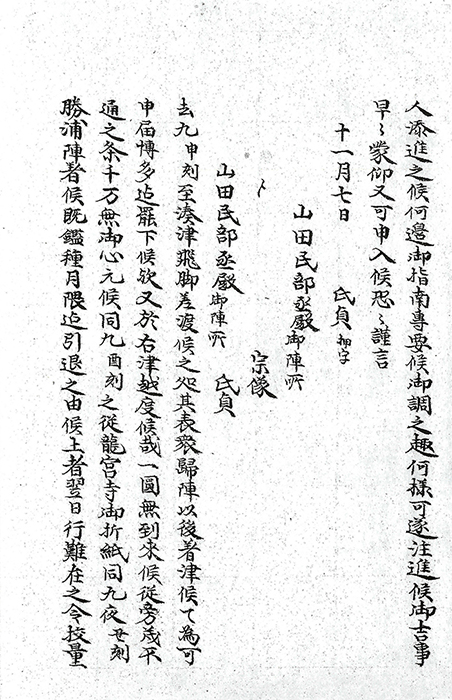 人添進之候何邊御指南專要候御調之趣何様可遂注進候御吉事
早〻蒙仰又可申入候恐〻謹言
十一月七日　氏貞 判字
山田民部丞殿 御陣所
〻　宗像
山田民部丞殿 御陣所　氏貞
去九申刻至湊津飛脚差渡候之処其表衆歸陣以後着津候て為可
申届博多迠罷下候欤又於右津越度候哉一圓無到来候従旁茂不
通之条千万無御心元候同九酉刻之従龍宮寺御折紙同九夜丑刻
勝浦陣着候既鑑種月隈迠引退之由候上者翌日行難在之令按量